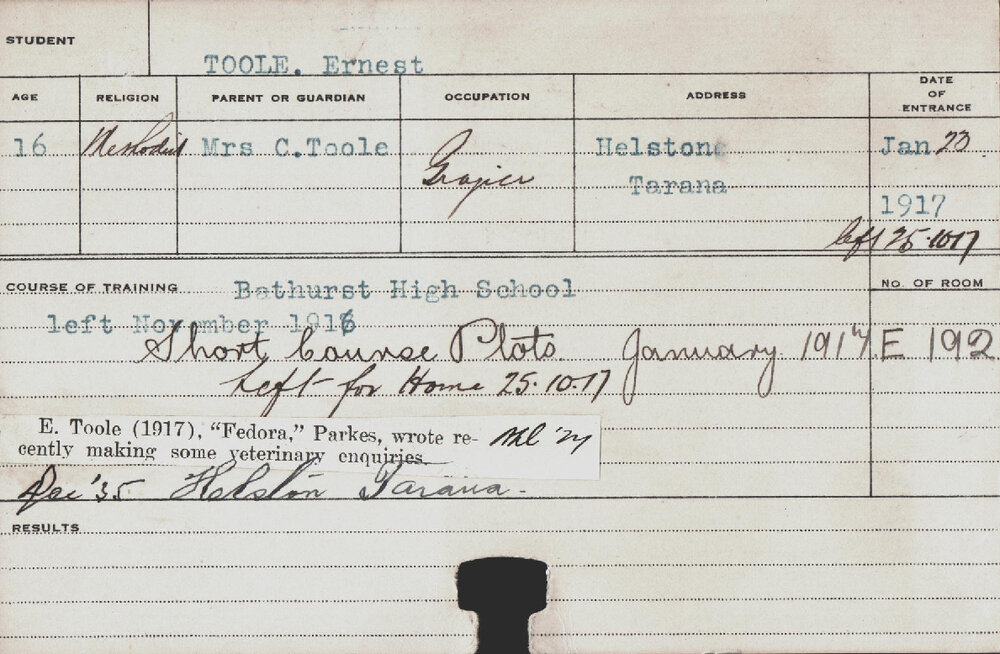 STUDENT
TOOLE. Ernest
AGE RELIGION PARENT OR GUARDIAN OCCUPATION ADDRESS DATE OF ENTRANCE
16 Methodist Mrs C.Toole Grazier Helston Jan 23
Tarana
1917
left 25.10.17
COURSE OF TRAINING Bathurst High School No. OF ROOM
left November 1916
Short Course Plots. January 1917. E 192
Left for Home 25.10.17
E. Toole (1917), "Fedora," Parkes, wrote re-
cently making some veterinary enquiries
Dec '35 Helston Tarana.
RESULTS